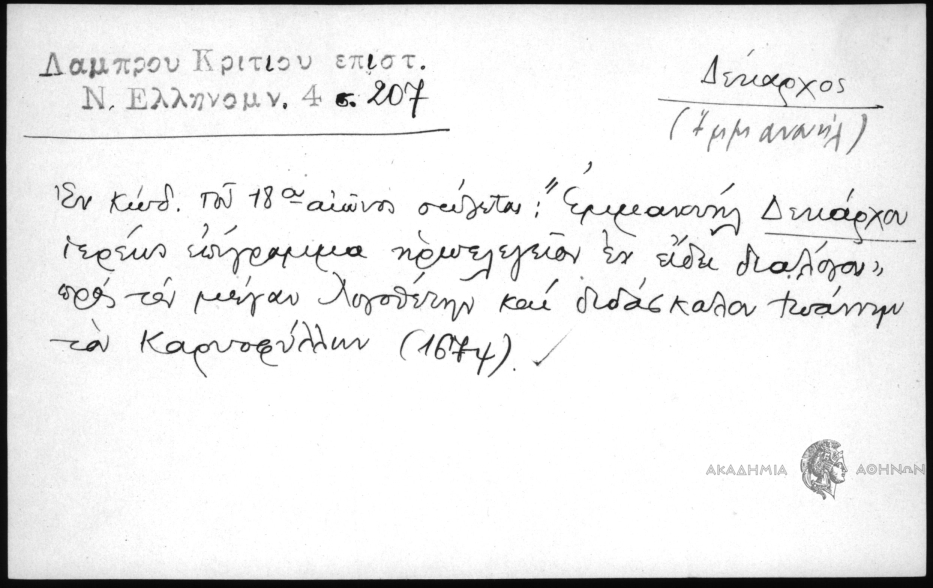 Λαμπρου Κριτιου επιστ.
Ν. Ελληνομν. 4 σ. 207
Δέκαρχος
(Ἐμμανουήλ)
Ἐν κώδ. τοῦ 18ου αἰῶνος σώζεται: "Ἐμμανουήλ Δεκάρχου
ἱερέως ἐπίγραμμα ἡρωελεγεῖον ἐν εἴδει διαλόγου"
πρός τόν μέγαν Λογοθέτην καί διδάσκαλον Ἰωάννην
τόν Καρυοφύλλην (1674).
ΑΚΑΔΗΜΙΑ ΑΘΗΝΩΝ